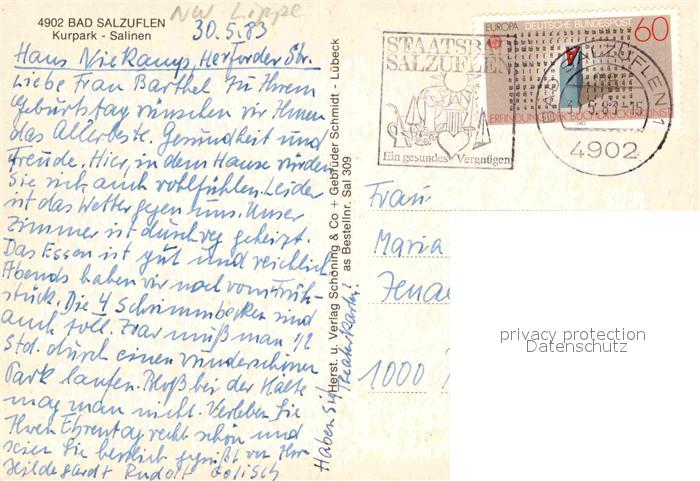 4902 BAD SALZUFLEN
Kurpark - Salinen
NW. Lippe
30.5.83
Haus Niekamp, Herforder Str.
Liebe Frau Barthel zu Ihrem
Geburtstag wünschen wir Ihnen
das Allerbeste. Gesundheit und
Freude. Hier, in dem Hause würden
Sie sich auch wohlfühlen. Leider
ist das Wetter gegen uns. Unser
Zimmer ist durchweg geheizt.
Das Essen ist gut und reichlich
Abends haben wir noch vom Früh-
stück. Die 4 Schwimmbecken sind
auch toll. Zwar muß man 1/2
Std. durch einen wunderschönen
Park laufen. Bloß bei der Kälte
mag man nicht. Verleben Sie
Ihren Ehrentag recht schön und
seien Sie herzlich gegrüßt von Ihren
Hildegardt Rudolf
Haben Sie
Theaterkarten?
Herst. u. Verlag Schöning & Co + Gebrüder Schmidt - Lübeck
as Bestellnr. Sal 309
STAATSBAD
SALZUFLEN
Ein gesundes Vergnügen
EUROPA DEUTSCHE BUNDESPOST 60
ERFINDUNG DER BUCHDRUCKKUNST
BAD SALZUFLEN 1
5.83-15
4902
Frau
Maria
Jena
1000
privacy protection
Datenschutz